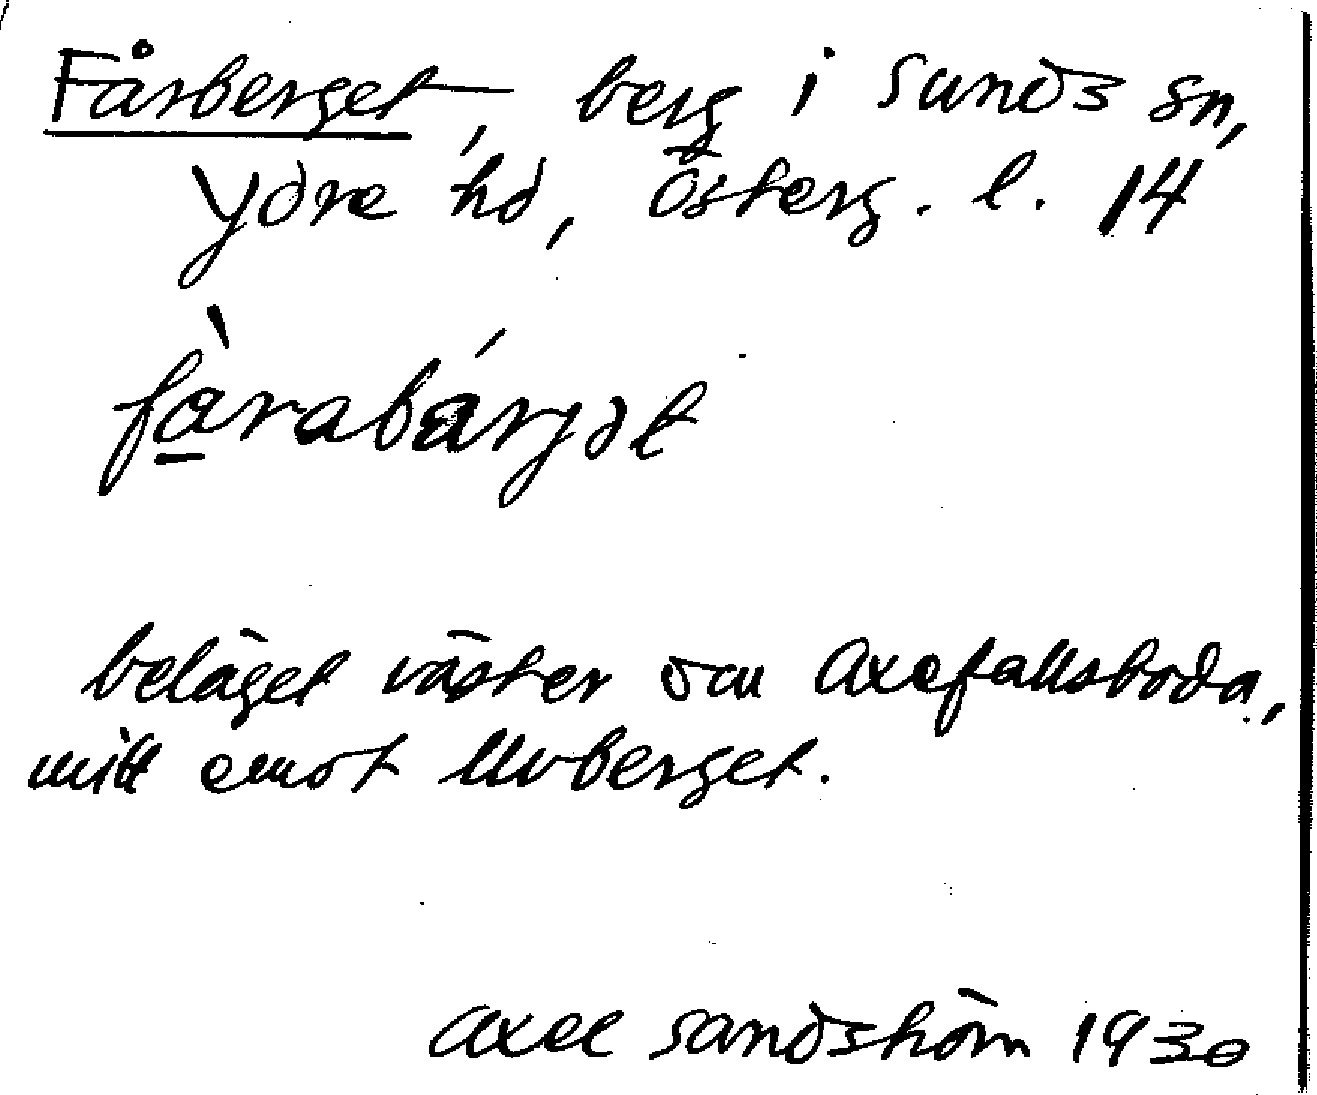 Fårberget, berg i Sunds sn,
Ydre hd, Österg. l. 14
fàrabárjət
beläget väster om Axefallsboda,
mitt emot Uvberget.
Axel Sandström 1930